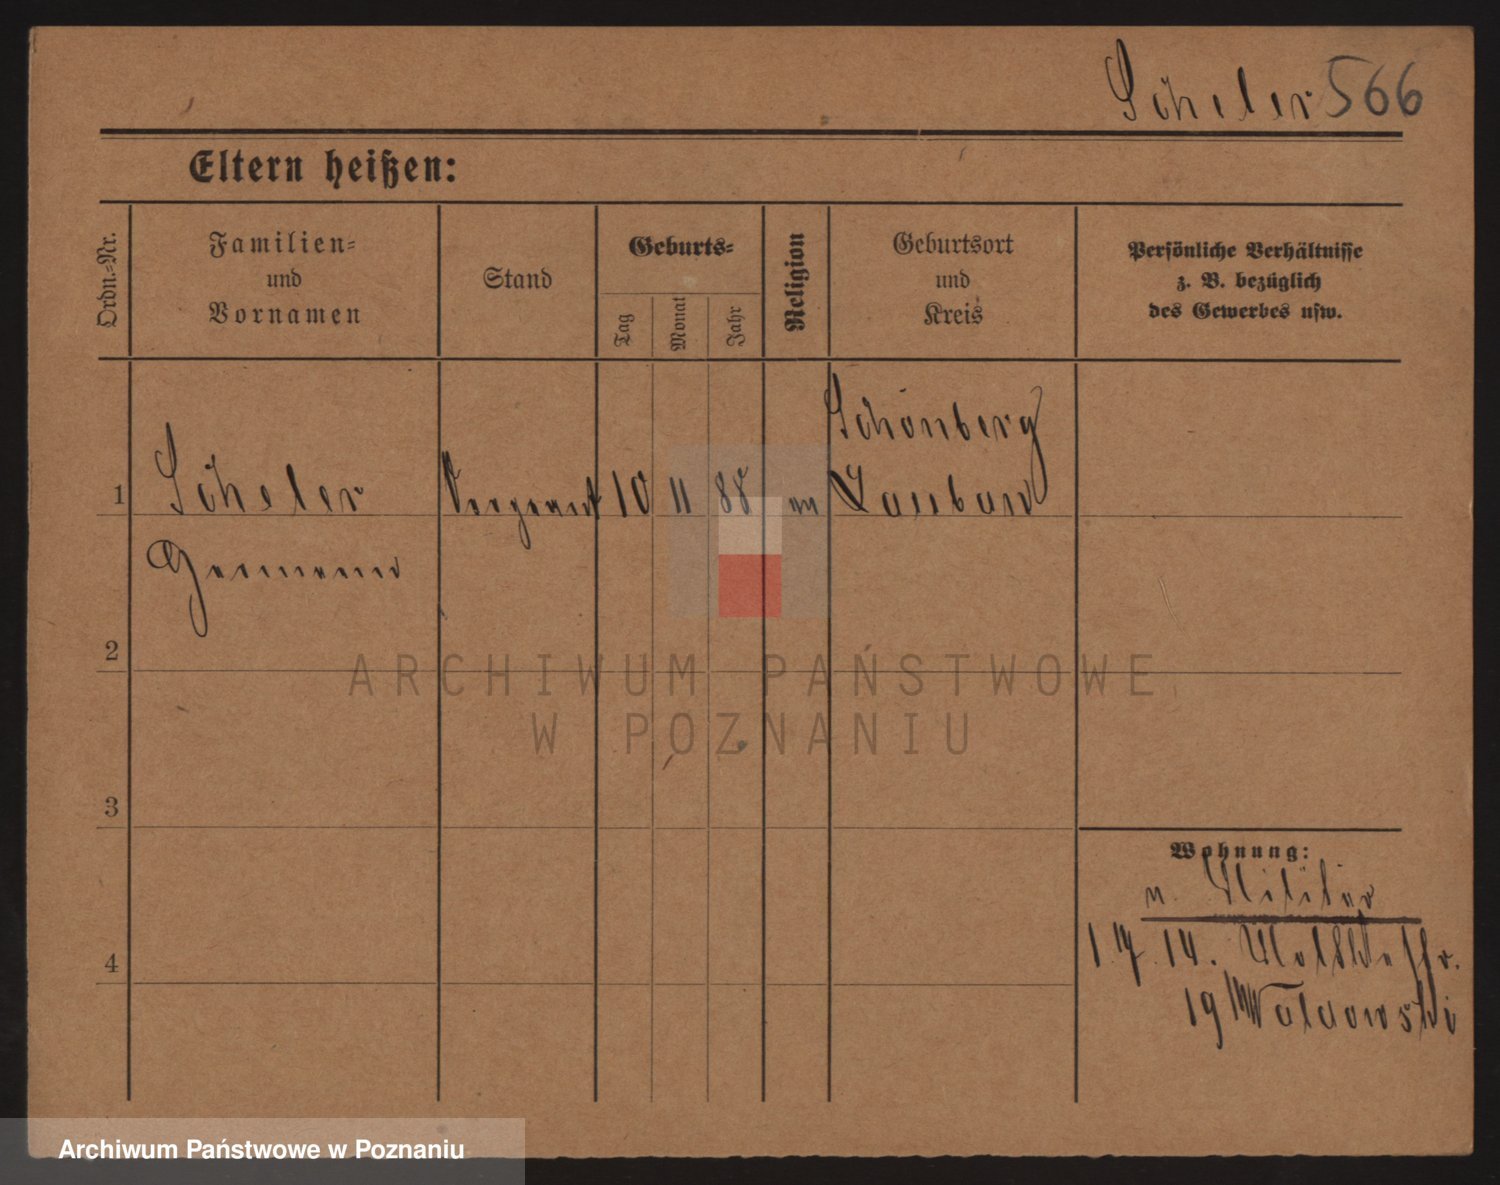 Scheler 566
Eltern heißen:
Ordn.-Nr.
Familien-
und
Vornamen
Stand
Geburts-
Tag
Monat
Jahr
Religion
Geburtsort
und
Kreis
Persönliche Verhältnisse
z. B. bezüglich
des Gewerbes usw.
Schönberg
1 Scheler 10 11 88 Lauban
Hermann
2
3
4
Wohnung:
v. Militär
1. 14.
19 Waldowski
ARCHIWUM PAŃSTWOWE
W POZNANIU
Archiwum Państwowe w Poznaniu